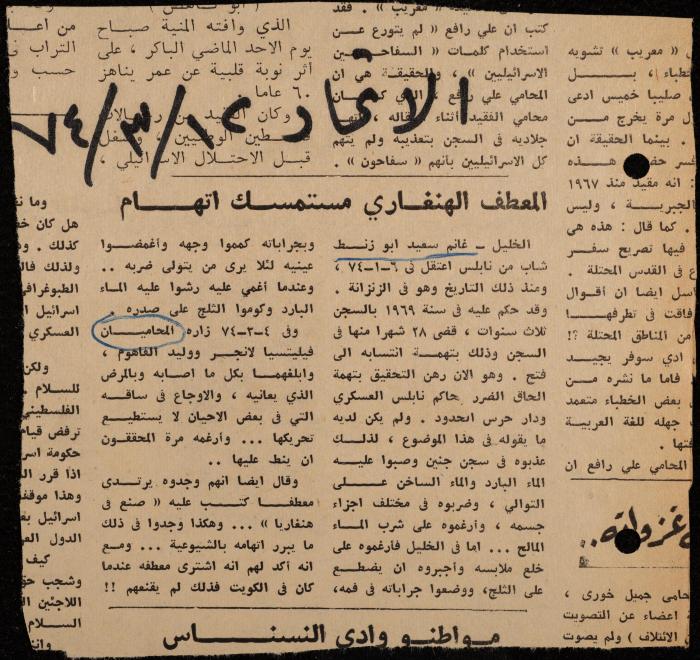 كتب ان علي رافع « لم يتورع عن
استخدام كلمات « السفاحين
الاسرائيليين » ، والحقيقة هي ان
المحامي علي رافع ، الذي كان
محامي الفقيد أثناء
جلاديه في السجن بتعذيبه ولم يتهم
كل الاسرائيليين بأنهم « سفاحون » .
الذي وافته المنية صباح
يوم الاحد الماضي الباكر ، على
أثر نوبة قلبية عن عمر يناهز
٦٠ عاما .
وكان
قبل الاحتلال الاسرائيلي ،
الاتحاد ١٢/٣/٧٤
المعطف الهنغاري مستمسك اتهام
الخليل ـ غانم سعيد ابو زنط
شاب من نابلس اعتقل في ٦-١-٧٤ ،
ومنذ ذلك التاريخ وهو في الزنزانة .
وقد حكم عليه في سنة ١٩٦٩ بالسجن
ثلاث سنوات ، قضى ٢٨ شهرا منها في
السجن وذلك بتهمة انتسابه الى
فتح . وهو الان رهن التحقيق بتهمة
الحاق الضرر بحاكم نابلس العسكري
ودار حرس الحدود . ولم يكن لديه
ما يقوله في هذا الموضوع ، لذلك
عذبوه في سجن جنين وصبوا عليه
الماء البارد والماء الساخن على
التوالي ، وضربوه في مختلف اجزاء
جسمه ، وأرغموه على شرب الماء
المالح ... اما في الخليل فأرغموه على
خلع ملابسه وأجبروه ان يضطجع
على الثلج، ووضعوا جراباته في فمه،
وبجراباته كمموا وجهه وأغمضوا
عينيه لئلا يرى من يتولى ضربه ..
وعندما أغمي عليه رشوا عليه الماء
البارد وكوموا الثلج على صدره .
وفى ٤-٢-٧٤ زاره المحاميان
فيليتسيا لانجر ووليد الفاهوم ،
وابلغهما بكل ما اصابه وبالمرض
الذي يعانيه ، والاوجاع في ساقه
التي في بعض الاحيان لا يستطيع
تحريكها ... وأرغمه مرة المحققون
ان ينط عليها ..
وقال ايضا انهم وجدوه يرتدى
معطفا كتب عليه « صنع في
هنغاريا » ... وهكذا وجدوا في ذلك
ما يبرر اتهامه بالشيوعية ... ومع
انه أكد لهم انه اشترى معطفه عندما
كان في الكويت فذلك لم يقنعهم !!
مواطنو وادي النسناس
« معريب » تشويه
خطباء ، بل
صليبا خميس ادعى
مرة يخرج من
. بينما الحقيقة ان
هذه
: انه مقيد منذ ١٩٦٧
الجبرية ، وليس
. كما قال : هذه هي
فيها تصريح سفر
في القدس المحتلة .
اسل ايضا ان أقوال
فاقت في تطرفها
من المناطق المحتلة ؟!
ادي سوفر يجيد
فاما ما نشره من
بعض الخطباء متعمد
جهله للغة العربية
المحامي علي رافع ان
غزواته ..
حامى جميل خورى ،
اعضاء عن التصويت
الائتلاف ) ولم يصوت
من
التراب
حسب
وما
هل كان
كذلك .
ولذلك
الطبوغرا
اسرائيل
العسكري
ولكن
للسلام .
الفلسطيني
ترفض
حكومة
اذا قرر
وهذا موقف
اسرائيل
الدول
كيف
وشجب
اللاجئين
السلام